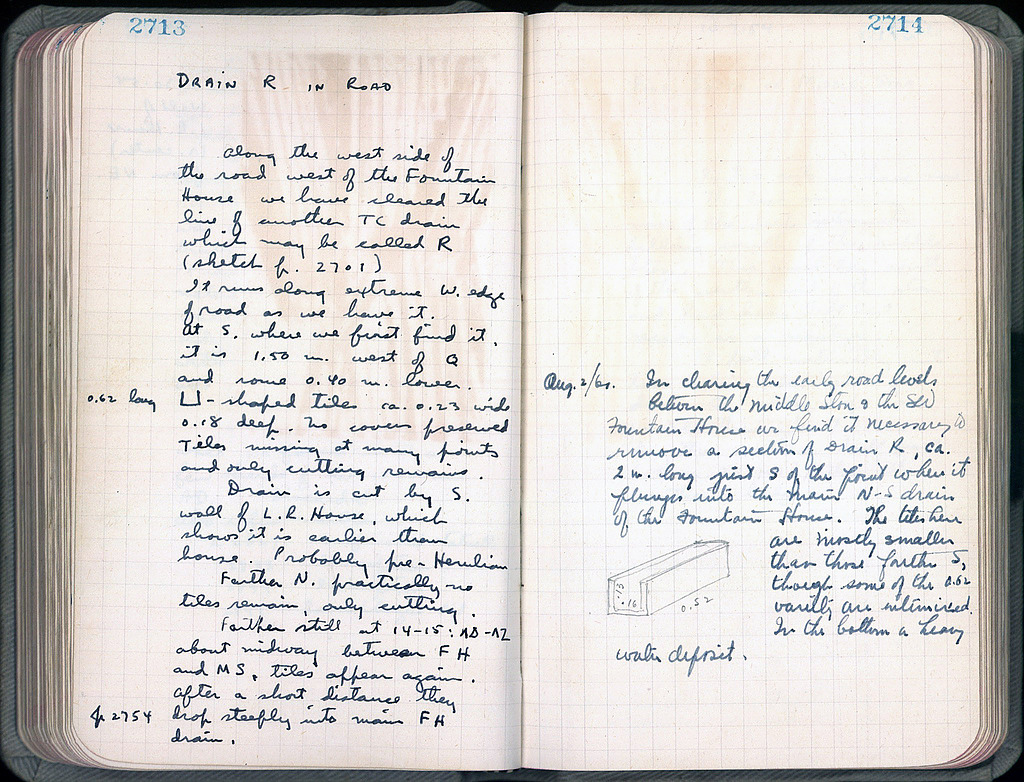 2713
DRAIN R IN ROAD
Along the west side of
the road west of the Fountain
House we have cleared the
line of another TC drain
which may be called R
(sketch p. 2701)
It runs along extreme W. edge
of road as we have it.
At S. where we first find it,
it is 1.50 m. west of Q
and some 0.40 m. lower.
0.62 long ⊔-shaped tiles ca. 0.23 wide
0.18 deep. No covers preserved
Tiles missing at many points
and only cutting remains.
Drain is cut by S.
wall of L.R. House, which
shows it is earlier than
house. Probably pre-Herulian
Farther N. practically no
tiles remain, only cutting.
Farther still at 14-15: ΝΔ-ΝΖ
about midway between FH
and MS, tiles appear again.
After a short distance they
p. 2754 drop steeply into main FH
drain.
2714
Aug. 2/60. In clearing the early road levels
between the Middle Stoa & the SW
Fountain House we find it necessary to
remove a section of Drain R, ca.
2 m. long just S of the point where it
plunges into the main N-S drain
of the Fountain House. The tiles here
are mostly smaller
than those farther S,
though some of the 0.62
variety are intermixed.
In the bottom a heavy
water deposit.
.13
.16
0.52